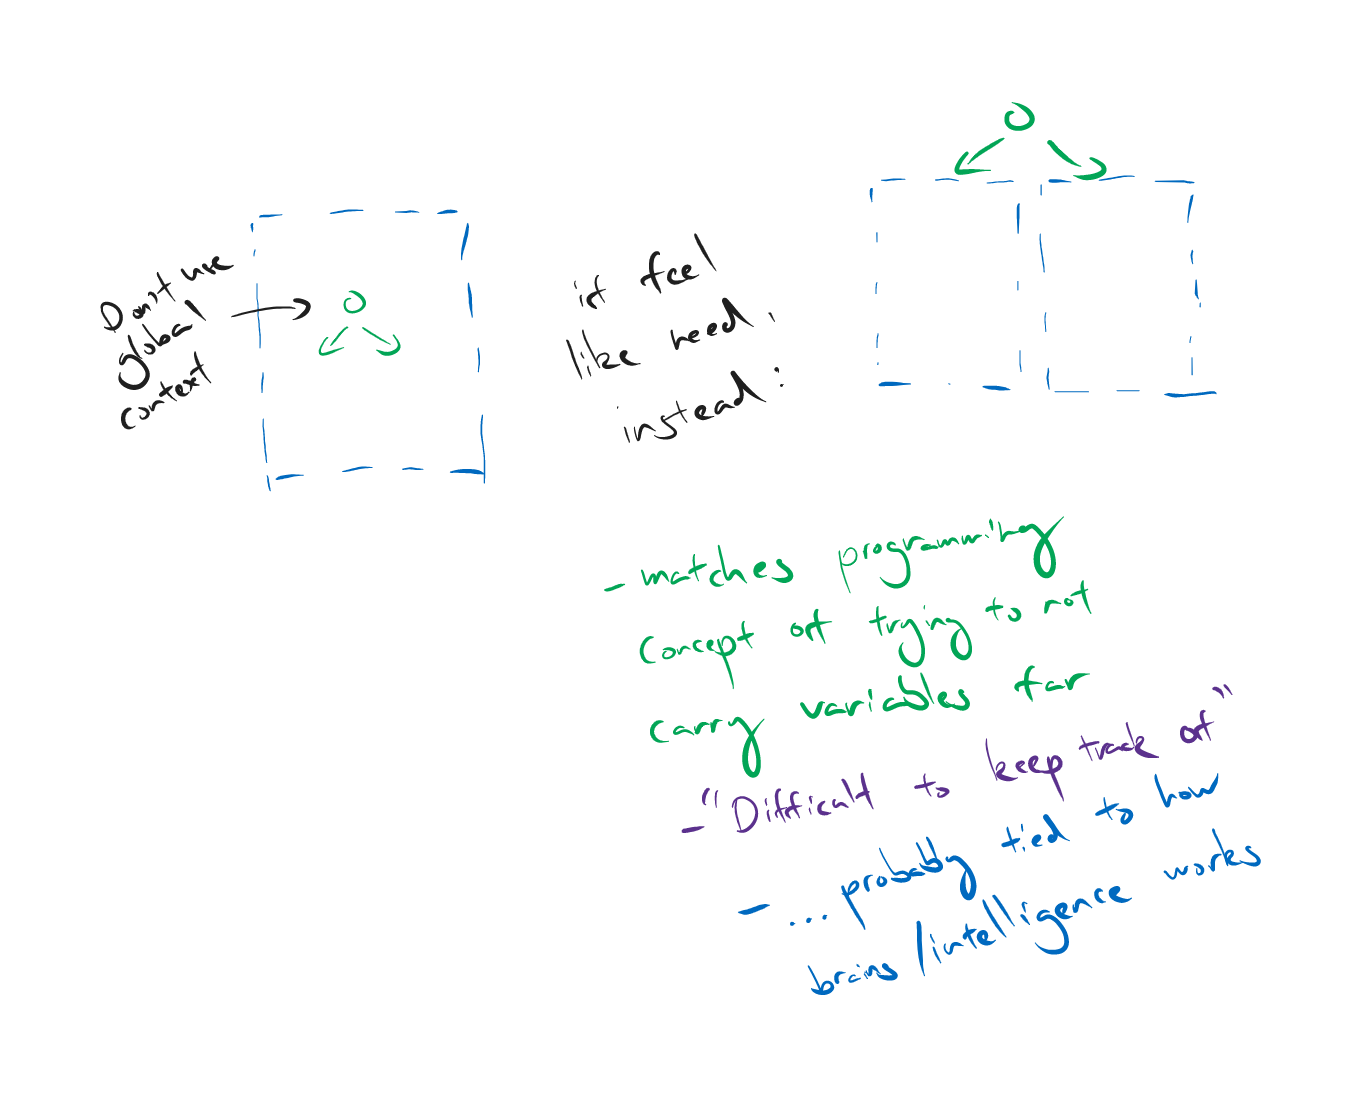 Don't use
global
context
if feel
like need,
instead:
- matches programming
concept of trying to not
carry variables far
- "Difficult to keep track of"
- ... probably tied to how
brains/intelligence works